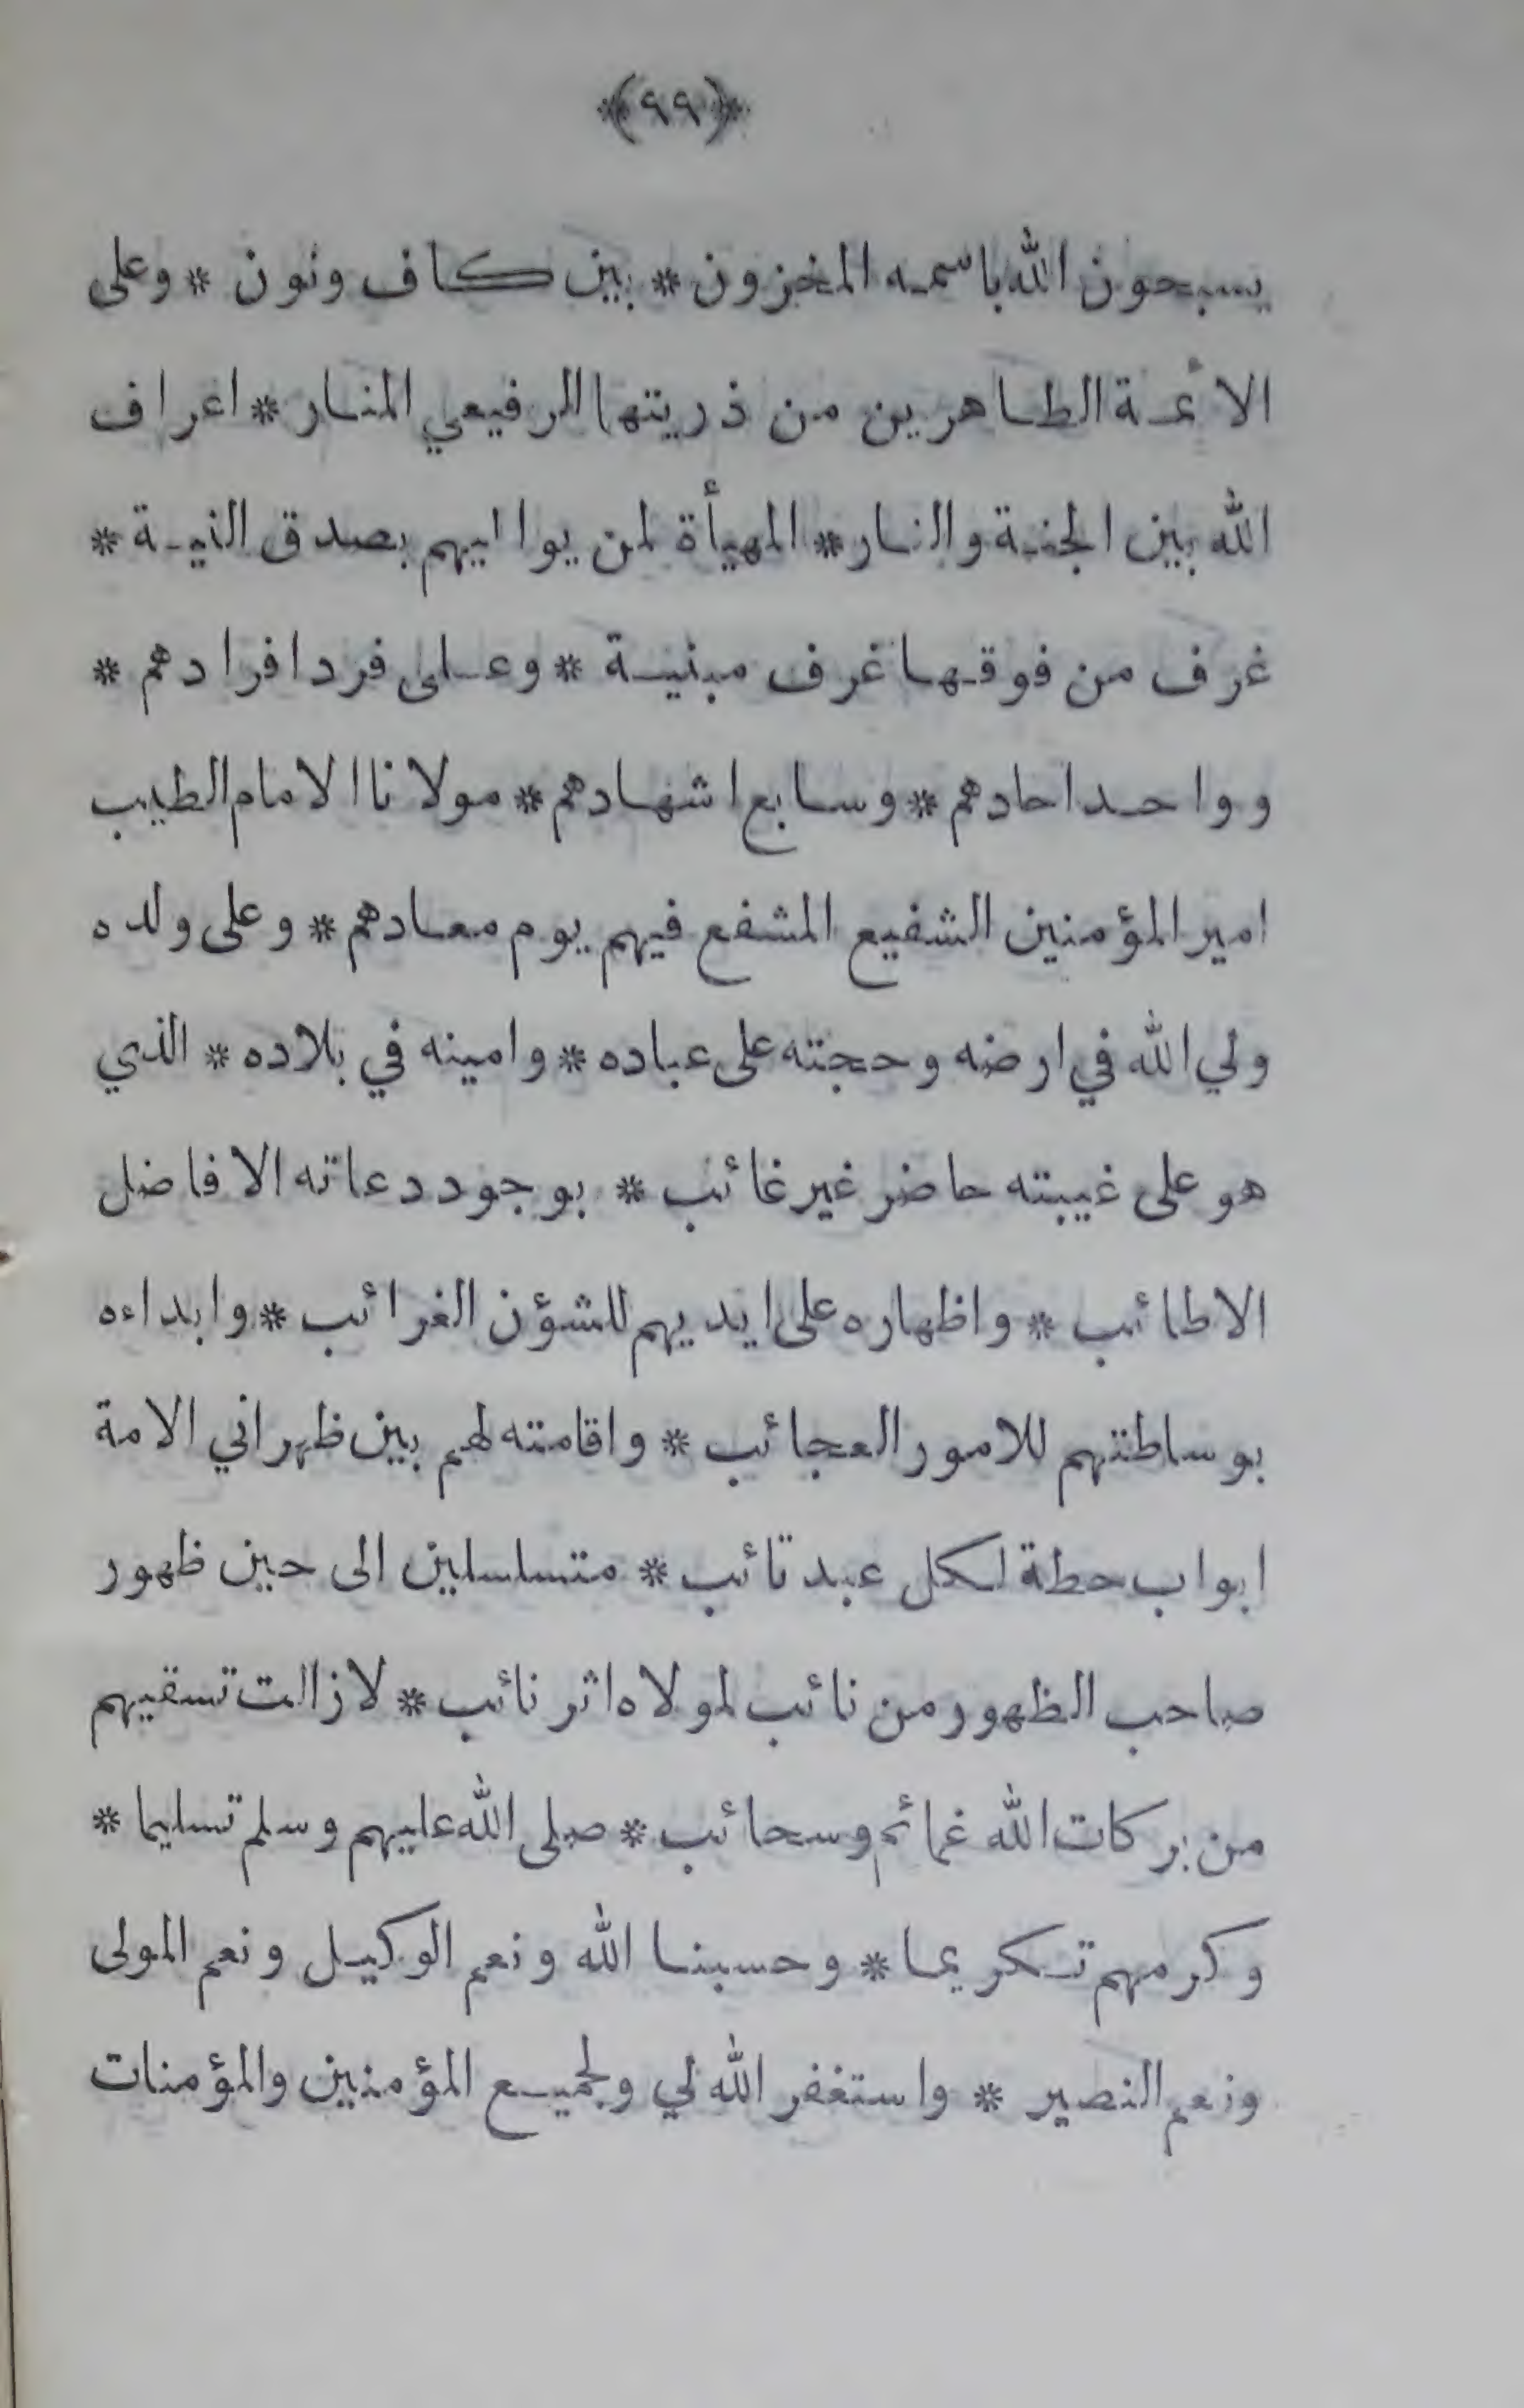 ﴿٩٩﴾
يسبحون الله باسمه المخزون * بين كاف ونون * وعلى
الائمة الطاهرين من ذريتها الرفيعي المنار * اعراف
الله بين الجنة والنار * المهيأة لمن يواليهم بصدق النية *
غرف من فوقها غرف مبنية * وعلى فرد افرادهم *
وواحد احادهم * وسابع اشهادهم * مولانا الامام الطيب
امير المؤمنين الشفيع المشفع فيهم يوم معادهم * وعلى ولده
ولي الله في ارضه وحجته على عباده * وامينه في بلاده * الذي
هو على غيبته حاضر غير غائب * بوجود دعاته الافاضل
الاطائب * واظهاره على ايديهم للشؤن الغرائب * وابداءه
بوساطتهم للامور العجائب * واقامته لهم بين ظهراني الامة
ابواب حطة لكل عبد تائب * متسلسلين الى حين ظهور
صاحب الظهور من نائب لمولاه اثر نائب * لازالت تسقيهم
من بركات الله غمائم وسحائب * صلى الله عليهم وسلم تسليما *
وكرمهم تكريما * وحسبنا الله ونعم الوكيل ونعم المولى
ونعم النصير * واستغفر الله لي ولجميع المؤمنين والمؤمنات